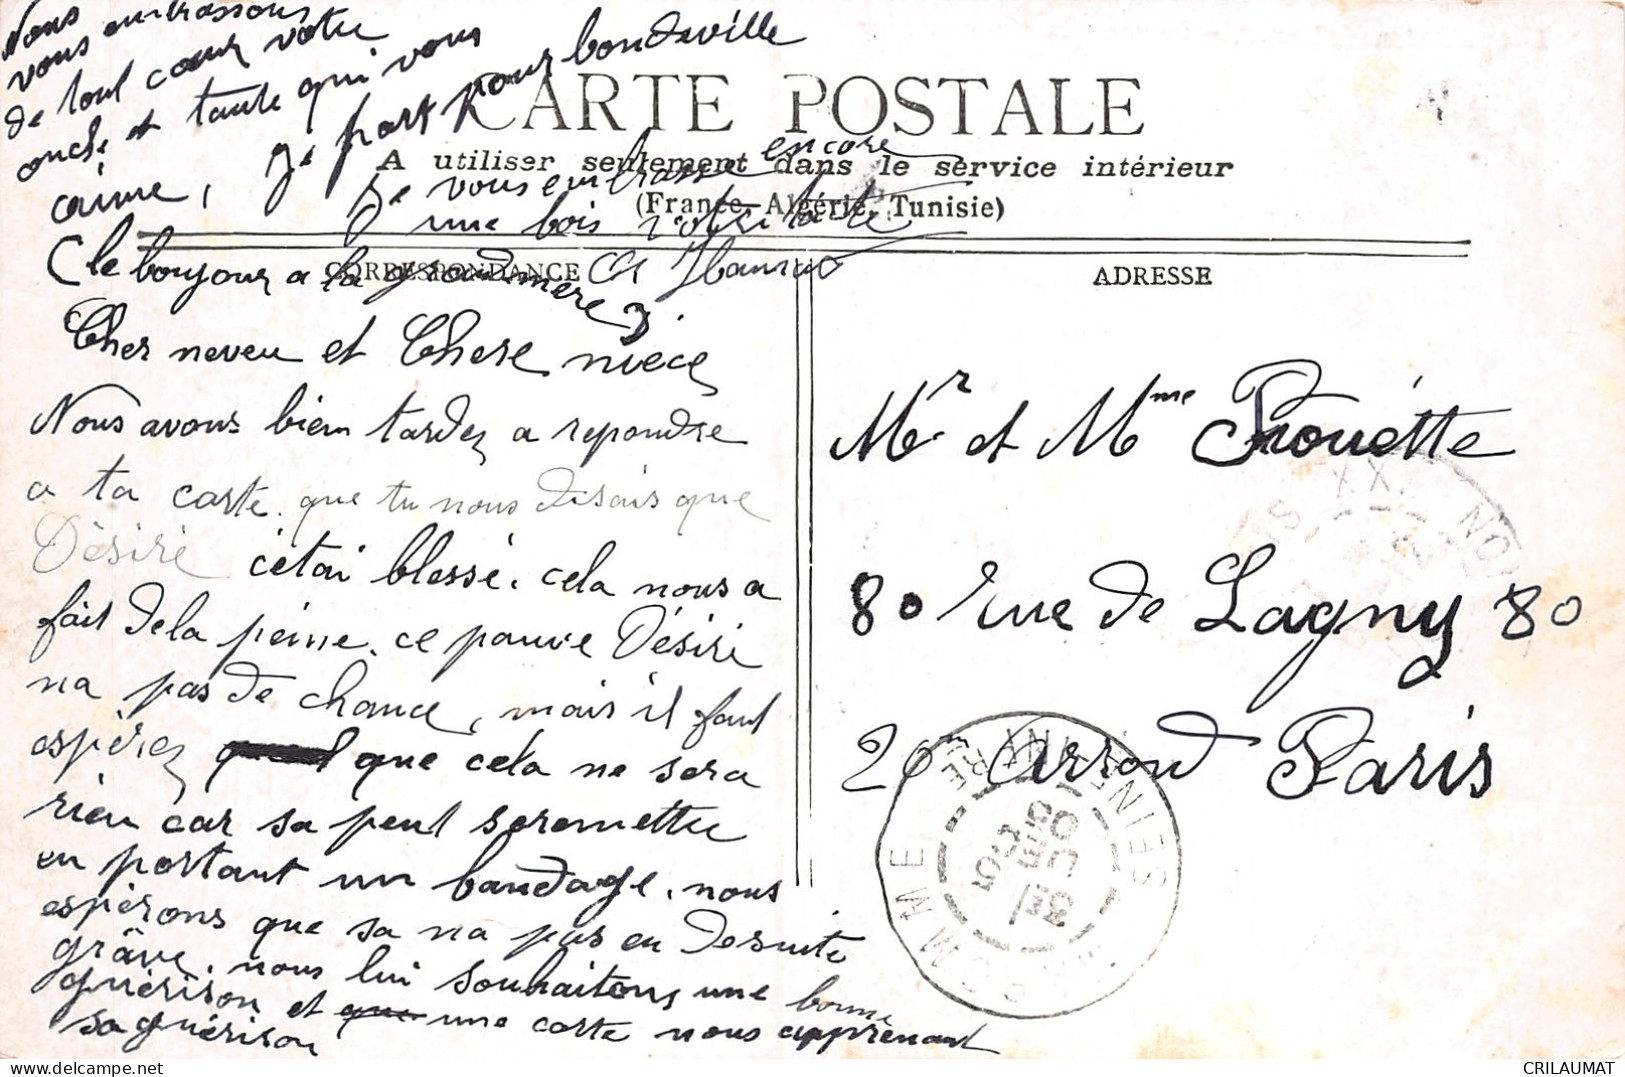 CARTE POSTALE
A utiliser seulement dans le service intérieur
(France, Algérie, Tunisie)
CORRESPONDANCE
ADRESSE
Cher neveu et Chere niéce
Nous avons bien tardez a repondre
a ta carte. que tu nous disais que
Désiré c'étai blessé. cela nous a
fait de la peine. ce pauvre Désiré
na pas de chance, mais il faut
espérez que cela ne sera
rien car sa peut seremettre
en portant un bandage. nous
espérons que sa na pas eu de suite
grâve. nous lui souhaitons une bonne
guérison et une carte nous apprenant
sa guérison
Nous
vous embrassons
de tout cœur votre
oncle et tante qui vous
aime, je part pour bondeville
je vous embrasse encore
une bois votre tante
(le boujour a la grandmère)
Mr et Mme Prouette
80 rue de Lagny 80
20 Arrond Paris
SEINE INFRE
CRILAUMAT